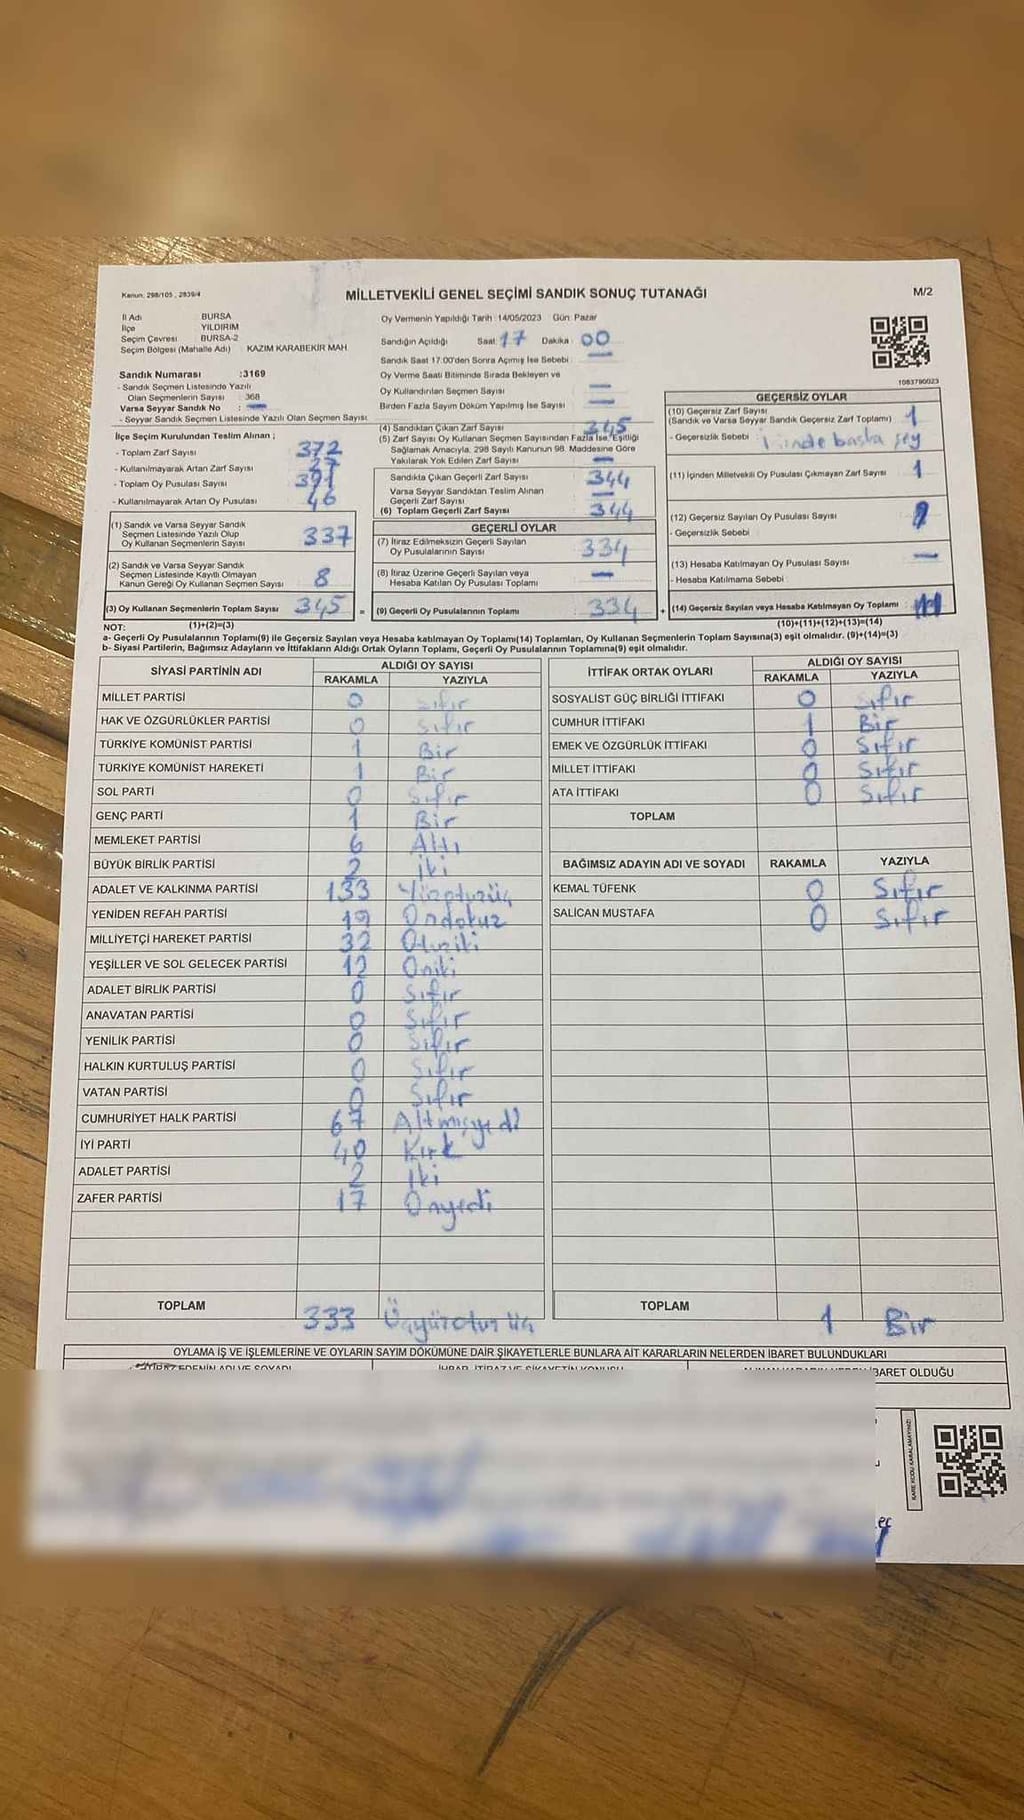 Kanun: 298/105 , 2839/4
MİLLETVEKİLİ GENEL SEÇİMİ SANDIK SONUÇ TUTANAĞI
M/2
İl Adı BURSA
İlçe YILDIRIM
Seçim Çevresi BURSA-2
Seçim Bölgesi (Mahalle Adı) KAZIM KARABEKİR MAH
Sandık Numarası :3169
- Sandık Seçmen Listesinde Yazılı
Olan Seçmenlerin Sayısı : 368
Varsa Seyyar Sandık No
- Seyyar Sandık Seçmen Listesinde Yazılı Olan Seçmen Sayısı
Oy Vermenin Yapıldığı Tarih :14/05/2023 Gün: Pazar
Sandığın Açıldığı Saat: 17 Dakika: 00
Sandık Saat 17:00'den Sonra Açımış İse Sebebi : —
Oy Verme Saati Bitiminde Sırada Bekleyen ve
Oy Kullandırılan Seçmen Sayısı —
Birden Fazla Sayım Döküm Yapılmış İse Sayısı —
1083790023
İlçe Seçim Kurulundan Teslim Alınan ;
- Toplam Zarf Sayısı 372
- Kullanılmayarak Artan Zarf Sayısı 27
- Toplam Oy Pusulası Sayısı 391
- Kullanılmayarak Artan Oy Pusulası 46
(1) Sandık ve Varsa Seyyar Sandık
Seçmen Listesinde Yazılı Olup
Oy Kullanan Seçmenlerin Sayısı 337
(2) Sandık ve Varsa Seyyar Sandık
Seçmen Listesinde Kayıtlı Olmayan
Kanun Gereği Oy Kullanan Seçmen Sayısı 8
(3) Oy Kullanan Seçmenlerin Toplam Sayısı 345 =
(1)+(2)=(3)
(4) Sandıktan Çıkan Zarf Sayısı 345
(5) Zarf Sayısı Oy Kullanan Seçmen Sayısından Fazla İse, Eşitliği
Sağlamak Amacıyla, 298 Sayılı Kanunun 98. Maddesine Göre
Yakılarak Yok Edilen Zarf Sayısı —
Sandıkta Çıkan Geçerli Zarf Sayısı 344
Varsa Seyyar Sandıktan Teslim Alınan
Geçerli Zarf Sayısı —
(6) Toplam Geçerli Zarf Sayısı 344
GEÇERLİ OYLAR
(7) İtiraz Edilmeksizin Geçerli Sayılan
Oy Pusulalarının Sayısı 334
(8) İtiraz Üzerine Geçerli Sayılan veya
Hesaba Katılan Oy Pusulası Toplamı —
(9) Geçerli Oy Pusulalarının Toplamı 334 +
GEÇERSİZ OYLAR
(10) Geçersiz Zarf Sayısı
(Sandık ve Varsa Seyyar Sandık Geçersiz Zarf Toplamı) 1
- Geçersizlik Sebebi içinde başka şey
(11) İçinden Milletvekili Oy Pusulası Çıkmayan Zarf Sayısı 1
(12) Geçersiz Sayılan Oy Pusulası Sayısı
- Geçersizlik Sebebi
(13) Hesaba Katılmayan Oy Pusulası Sayısı —
- Hesaba Katılmama Sebebi
(14) Geçersiz Sayılan veya Hesaba Katılmayan Oy Toplamı : 11
(10)+(11)+(12)+(13)=(14)
NOT:
a- Geçerli Oy Pusulalarının Toplamı(9) ile Geçersiz Sayılan veya Hesaba katılmayan Oy Toplamı(14) Toplamları, Oy Kullanan Seçmenlerin Toplam Sayısına(3) eşit olmalıdır. (9)+(14)=(3)
b- Siyasi Partilerin, Bağımsız Adayların ve İttifakların Aldığı Ortak Oyların Toplamı, Geçerli Oy Pusulalarının Toplamına(9) eşit olmalıdır.
SİYASİ PARTİNİN ADI ALDIĞI OY SAYISI
RAKAMLA YAZIYLA
MİLLET PARTİSİ 0 Sıfır
HAK VE ÖZGÜRLÜKLER PARTİSİ 0 Sıfır
TÜRKİYE KOMÜNİST PARTİSİ 1 Bir
TÜRKİYE KOMÜNİST HAREKETİ 1 Bir
SOL PARTİ 0 Sıfır
GENÇ PARTİ 1 Bir
MEMLEKET PARTİSİ 6 Altı
BÜYÜK BİRLİK PARTİSİ 2 İki
ADALET VE KALKINMA PARTİSİ 133 Yüzotuzüç
YENİDEN REFAH PARTİSİ 19 Ondokuz
MİLLİYETÇİ HAREKET PARTİSİ 32 Otuziki
YEŞİLLER VE SOL GELECEK PARTİSİ 12 Oniki
ADALET BİRLİK PARTİSİ 0 Sıfır
ANAVATAN PARTİSİ 0 Sıfır
YENİLİK PARTİSİ 0 Sıfır
HALKIN KURTULUŞ PARTİSİ 0 Sıfır
VATAN PARTİSİ 0 Sıfır
CUMHURİYET HALK PARTİSİ 67 Altmışyedi
İYİ PARTİ 40 Kırk
ADALET PARTİSİ 2 İki
ZAFER PARTİSİ 17 Onyedi
TOPLAM 333 Üçyüzotuzüç
İTTİFAK ORTAK OYLARI ALDIĞI OY SAYISI
RAKAMLA YAZIYLA
SOSYALİST GÜÇ BİRLİĞİ İTTİFAKI 0 Sıfır
CUMHUR İTTİFAKI 1 Bir
EMEK VE ÖZGÜRLÜK İTTİFAKI 0 Sıfır
MİLLET İTTİFAKI 0 Sıfır
ATA İTTİFAKI 0 Sıfır
TOPLAM
BAĞIMSIZ ADAYIN ADI VE SOYADI RAKAMLA YAZIYLA
KEMAL TÜFENK 0 Sıfır
SALİCAN MUSTAFA 0 Sıfır
TOPLAM 1 Bir
OYLAMA İŞ VE İŞLEMLERİNE VE OYLARIN SAYIM DÖKÜMÜNE DAİR ŞİKAYETLERLE BUNLARA AİT KARARLARIN NELERDEN İBARET BULUNDUKLARI
İHBAR, İTİRAZ VE ŞİKAYETİN KONUSU
İBARET OLDUĞU
KARE KODU KARALAMAYINIZ!